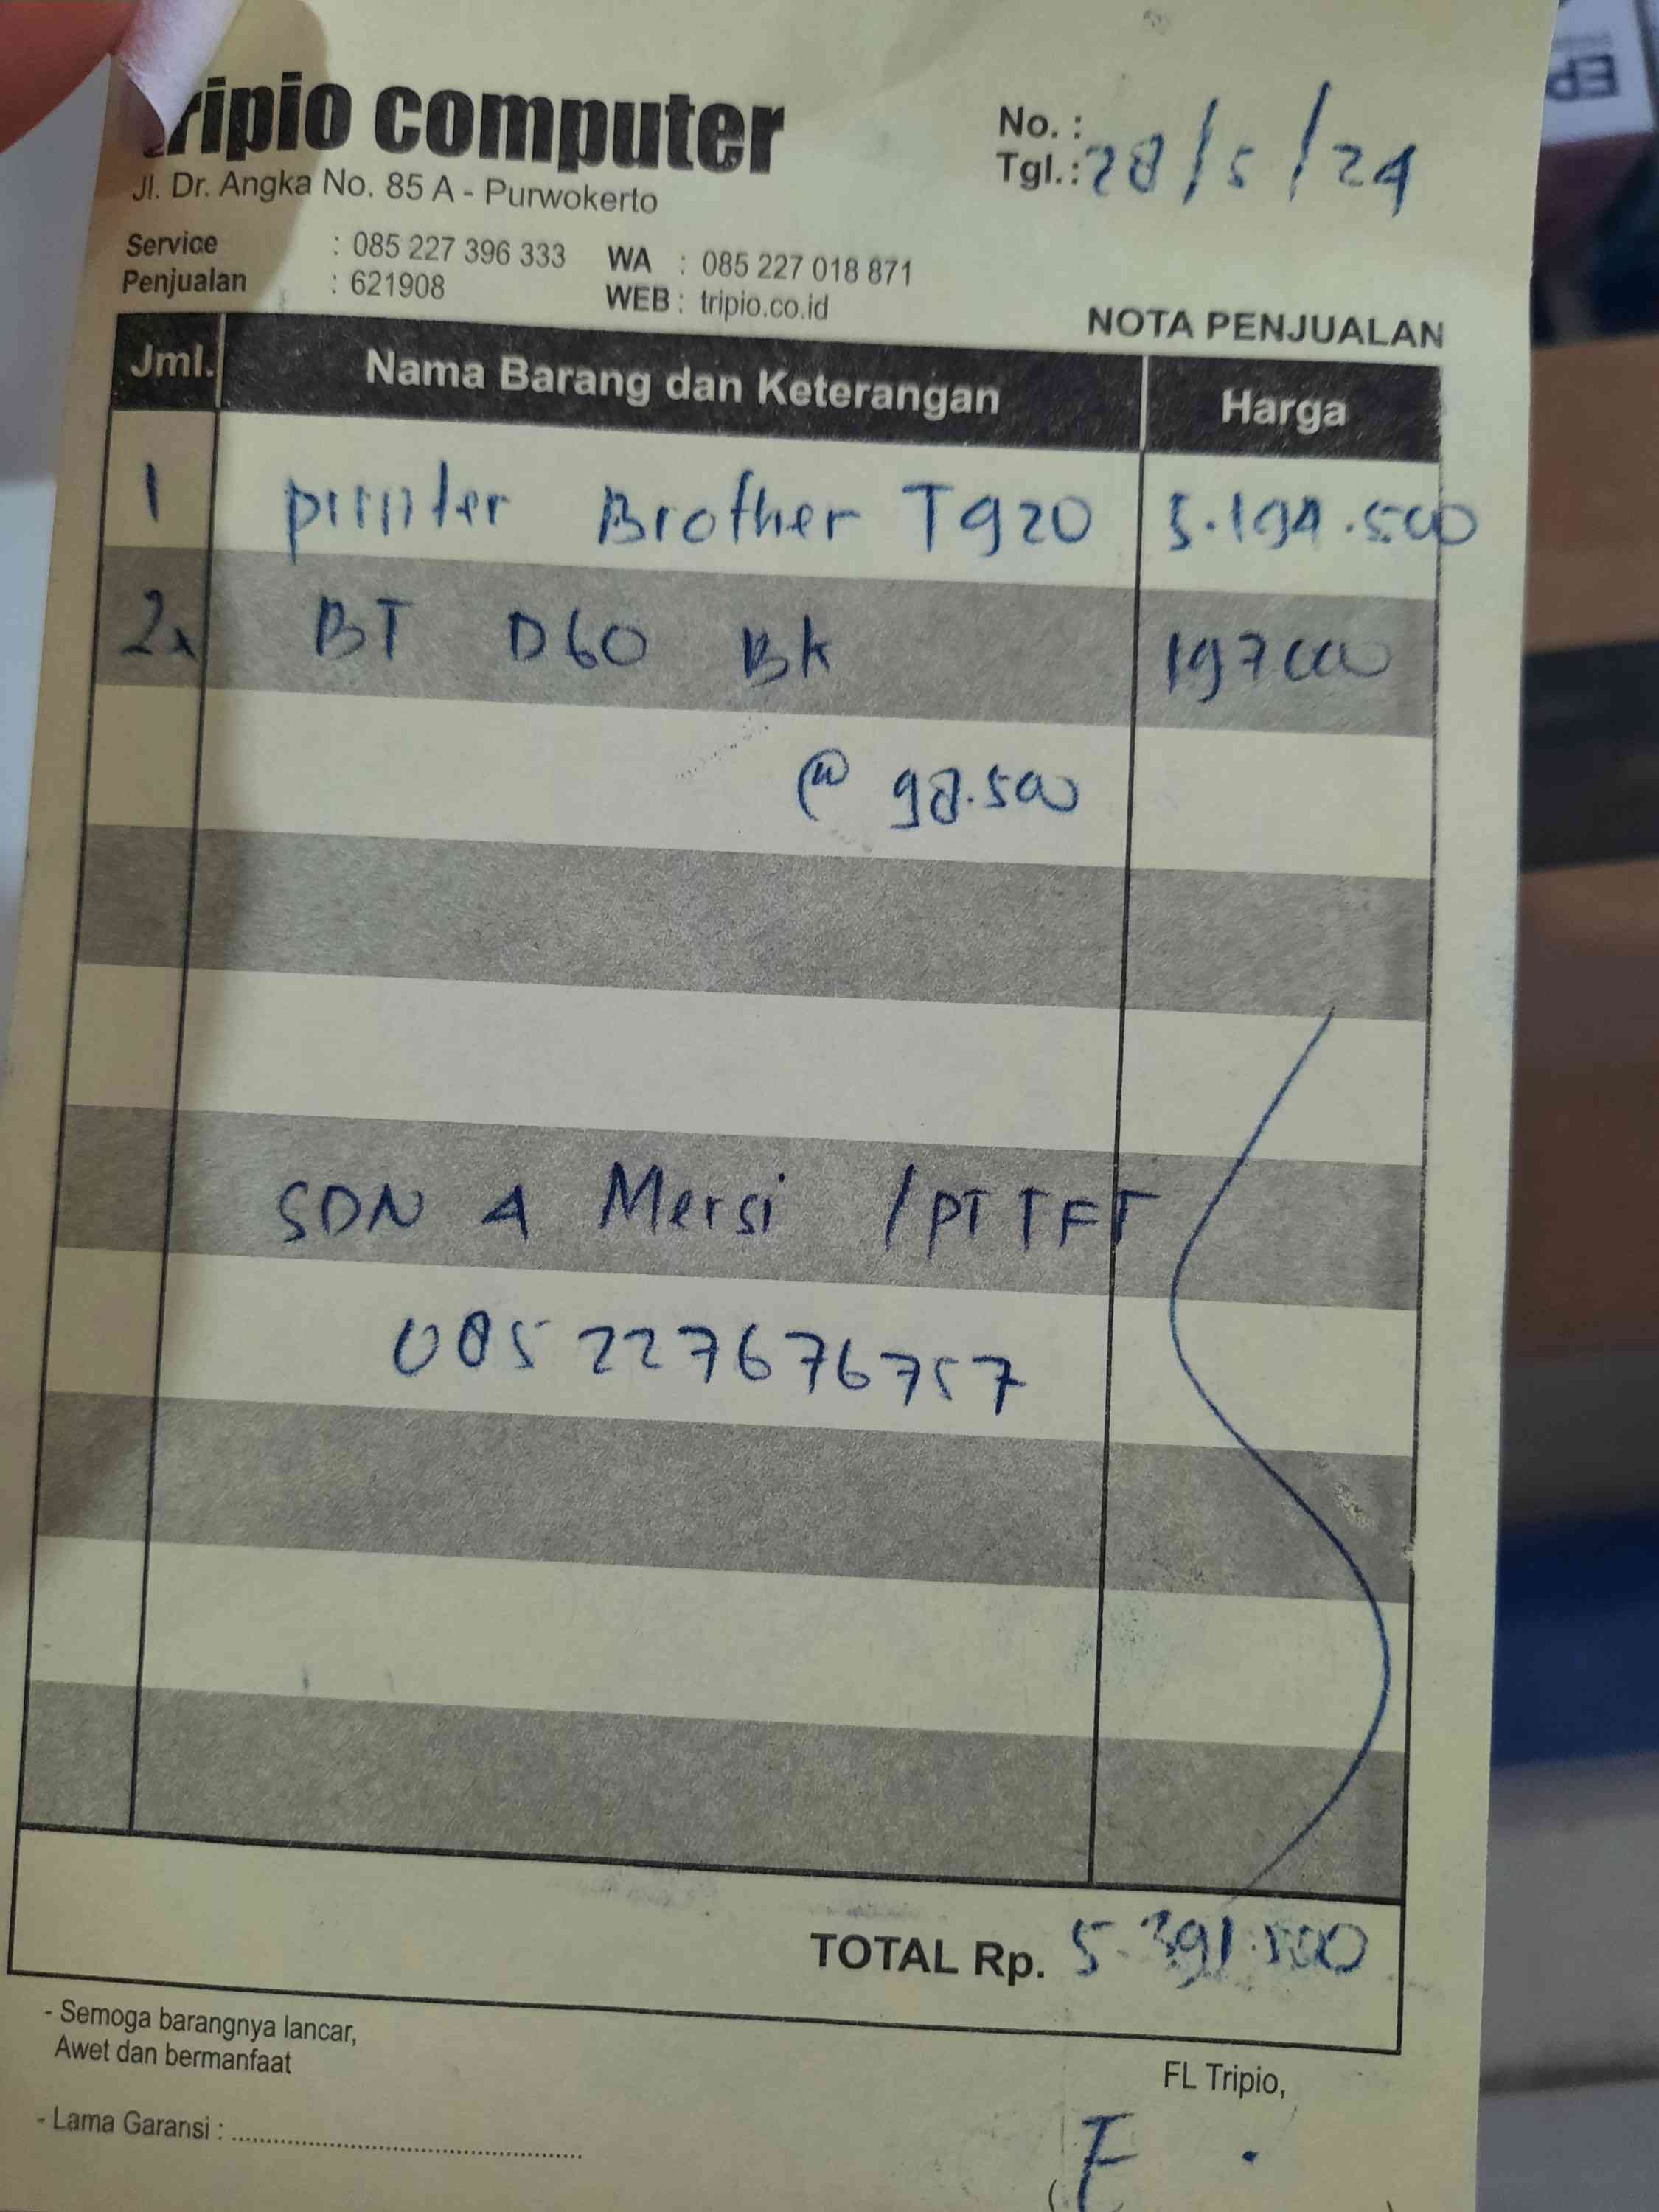 tripio computer
Jl. Dr. Angka No. 85 A - Purwokerto
No. :
Tgl. : 28/5/24
Service : 085 227 396 333 WA : 085 227 018 871
Penjualan : 621908 WEB : tripio.co.id
NOTA PENJUALAN
Jml. Nama Barang dan Keterangan Harga
1 printer Brother T920 5.194.500
2x BT D60 BK 197000
@ 98.500
SDN 4 Mersi / PT TFT
085 227676757
TOTAL Rp. 5.391.500
- Semoga barangnya lancar,
Awet dan bermanfaat
FL Tripio,
- Lama Garansi : ........................
F
EP